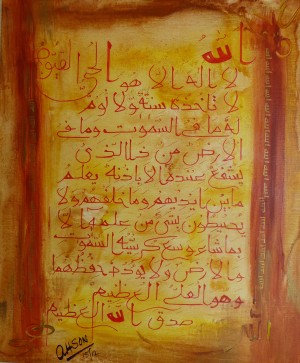 الله
لا اله الا هو الحي القيوم
لا تاخذه سنة ولا نوم
له ما في السموت وما في
الارض من ذا الذي
يشفع عنده الا باذنه يعلم
ما بين ايديهم وما خلفهم ولا
يحيطون بشئ من علمه الا
بما شاء وسع كرسيه السموت
والارض ولا يوده حفظهما
وهو العلي العظيم
صدق الله العظيم
AHSON